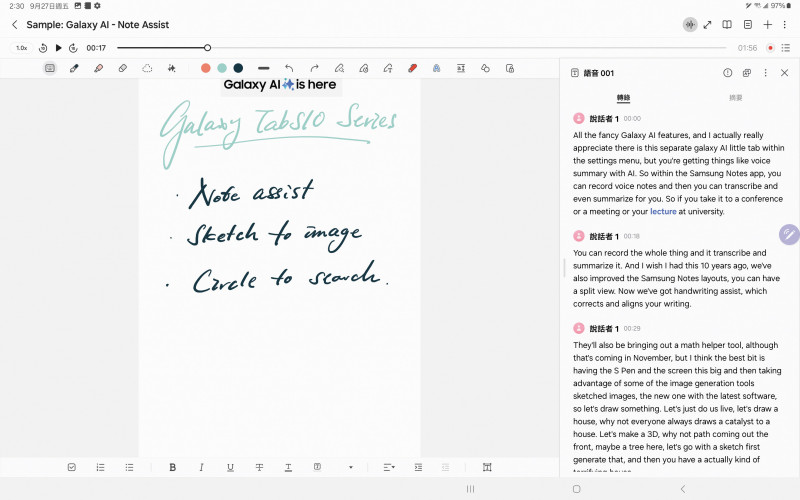 2:30 9月27日週五
97%
Sample: Galaxy AI - Note Assist
1.0x
00:17
01:56
Galaxy AI is here
Galaxy Tab S10 Series
· Note assist
· Sketch to image
· Circle to search.
B I U T T
語音 001
轉錄 摘要
說話者 1 00:00
All the fancy Galaxy AI features, and I actually really
appreciate there is this separate galaxy AI little tab within
the settings menu, but you're getting things like voice
summary with AI. So within the Samsung Notes app, you
can record voice notes and then you can transcribe and
even summarize for you. So if you take it to a conference
or a meeting or your lecture at university.
說話者 1 00:18
You can record the whole thing and it transcribe and
summarize it. And I wish I had this 10 years ago, we've
also improved the Samsung Notes layouts, you can have
a split view. Now we've got handwriting assist, which
corrects and aligns your writing.
說話者 1 00:29
They'll also be bringing out a math helper tool, although
that's coming in November, but I think the best bit is
having the S Pen and the screen this big and then taking
advantage of some of the image generation tools
sketched images, the new one with the latest software,
so let's draw something. Let's just do us live, let's draw a
house, why not everyone always draws a catalyst to a
house. Let's make a 3D, why not path coming out the
front, maybe a tree here, let's go with a sketch first
generate that, and then you have a actually kind of
terrifying house